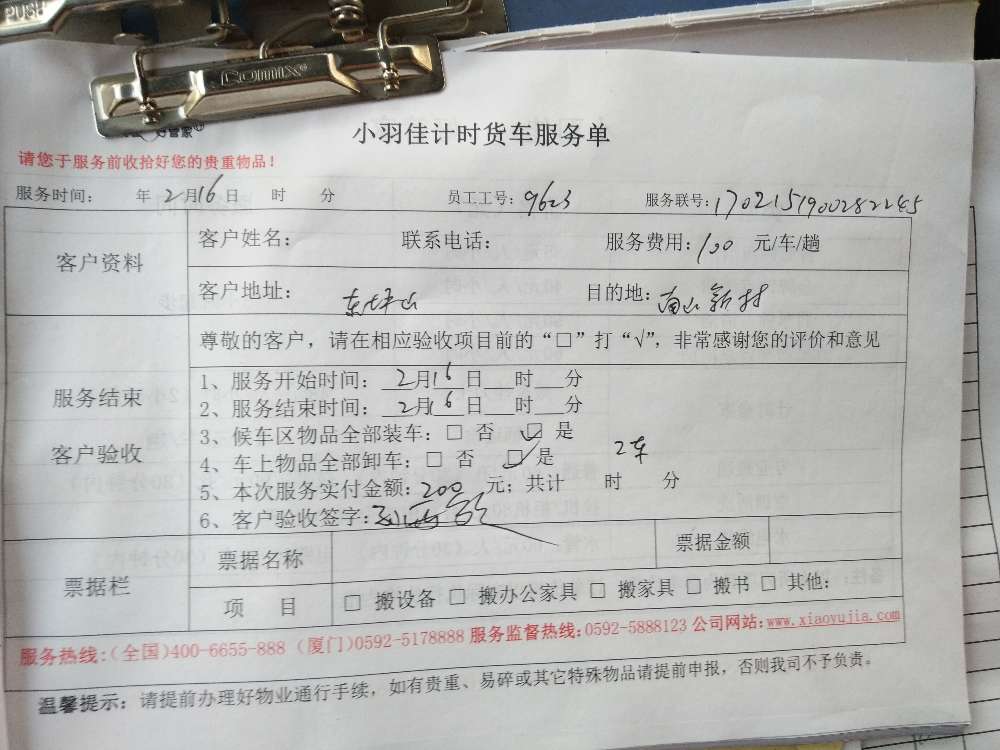 PUSH
Comix
好管家
小羽佳计时货车服务单
请您于服务前收拾好您的贵重物品！
服务时间： 年 2月16日 时 分 员工工号：9623 服务联号：1702151900282245
客户资料
客户姓名： 联系电话： 服务费用：100 元/车/趟
客户地址：东坪山 目的地：南山新村
服务结束
客户验收
尊敬的客户，请在相应验收项目前的“□”打“√”，非常感谢您的评价和意见
1、服务开始时间：2月16日 时 分
2、服务结束时间：2月16日 时 分
3、候车区物品全部装车：□ 否 ☑ 是
4、车上物品全部卸车：□ 否 ☑ 是 2车
5、本次服务实付金额：200 元；共计 时 分
6、客户验收签字：
票据栏
票据名称 票据金额
项 目 □ 搬设备 □ 搬办公家具 □ 搬家具 □ 搬书 □ 其他：
服务热线：（全国）400-6655-888（厦门）0592-5178888 服务监督热线：0592-5888123 公司网站：www.xiaoyujia.com
温馨提示：请提前办理好物业通行手续，如有贵重、易碎或其它特殊物品请提前申报，否则我司不予负责。